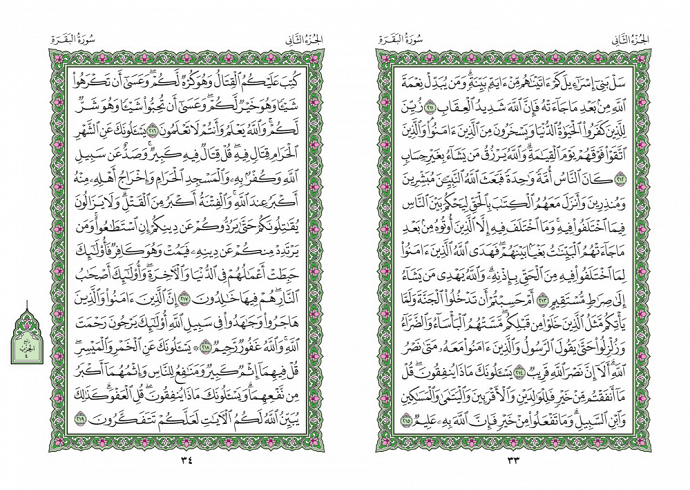 الجزء الثاني
سورة البقرة
سَلْ بَنِىٓ إِسْرَٰٓءِيلَ كَمْ ءَاتَيْنَٰهُم مِّنْ ءَايَةٍۭ بَيِّنَةٍ ۗ وَمَن يُبَدِّلْ نِعْمَةَ
ٱللَّهِ مِنۢ بَعْدِ مَا جَآءَتْهُ فَإِنَّ ٱللَّهَ شَدِيدُ ٱلْعِقَابِ ٢١١ زُيِّنَ
لِلَّذِينَ كَفَرُوا۟ ٱلْحَيَوٰةُ ٱلدُّنْيَا وَيَسْخَرُونَ مِنَ ٱلَّذِينَ ءَامَنُوا۟ ۘ وَٱلَّذِينَ
ٱتَّقَوْا۟ فَوْقَهُمْ يَوْمَ ٱلْقِيَٰمَةِ ۗ وَٱللَّهُ يَرْزُقُ مَن يَشَآءُ بِغَيْرِ حِسَابٍ
٢١٢ كَانَ ٱلنَّاسُ أُمَّةً وَٰحِدَةً فَبَعَثَ ٱللَّهُ ٱلنَّبِيِّـۧنَ مُبَشِّرِينَ
وَمُنذِرِينَ وَأَنزَلَ مَعَهُمُ ٱلْكِتَٰبَ بِٱلْحَقِّ لِيَحْكُمَ بَيْنَ ٱلنَّاسِ
فِيمَا ٱخْتَلَفُوا۟ فِيهِ ۚ وَمَا ٱخْتَلَفَ فِيهِ إِلَّا ٱلَّذِينَ أُوتُوهُ مِنۢ بَعْدِ
مَا جَآءَتْهُمُ ٱلْبَيِّنَٰتُ بَغْيًۢا بَيْنَهُمْ ۖ فَهَدَى ٱللَّهُ ٱلَّذِينَ ءَامَنُوا۟
لِمَا ٱخْتَلَفُوا۟ فِيهِ مِنَ ٱلْحَقِّ بِإِذْنِهِۦ ۗ وَٱللَّهُ يَهْدِى مَن يَشَآءُ
إِلَىٰ صِرَٰطٍ مُّسْتَقِيمٍ ٢١٣ أَمْ حَسِبْتُمْ أَن تَدْخُلُوا۟ ٱلْجَنَّةَ وَلَمَّا
يَأْتِكُم مَّثَلُ ٱلَّذِينَ خَلَوْا۟ مِن قَبْلِكُم ۖ مَّسَّتْهُمُ ٱلْبَأْسَآءُ وَٱلضَّرَّآءُ
وَزُلْزِلُوا۟ حَتَّىٰ يَقُولَ ٱلرَّسُولُ وَٱلَّذِينَ ءَامَنُوا۟ مَعَهُۥ مَتَىٰ نَصْرُ
ٱللَّهِ ۗ أَلَآ إِنَّ نَصْرَ ٱللَّهِ قَرِيبٌ ٢١٤ يَسْـَٔلُونَكَ مَاذَا يُنفِقُونَ ۖ قُلْ
مَآ أَنفَقْتُم مِّنْ خَيْرٍ فَلِلْوَٰلِدَيْنِ وَٱلْأَقْرَبِينَ وَٱلْيَتَٰمَىٰ وَٱلْمَسَٰكِينِ
وَٱبْنِ ٱلسَّبِيلِ ۗ وَمَا تَفْعَلُوا۟ مِنْ خَيْرٍ فَإِنَّ ٱللَّهَ بِهِۦ عَلِيمٌ ٢١٥
٣٣
الجزء الثاني
سورة البقرة
كُتِبَ عَلَيْكُمُ ٱلْقِتَالُ وَهُوَ كُرْهٌ لَّكُمْ ۖ وَعَسَىٰٓ أَن تَكْرَهُوا۟
شَيْـًٔا وَهُوَ خَيْرٌ لَّكُمْ ۖ وَعَسَىٰٓ أَن تُحِبُّوا۟ شَيْـًٔا وَهُوَ شَرٌّ
لَّكُمْ ۗ وَٱللَّهُ يَعْلَمُ وَأَنتُمْ لَا تَعْلَمُونَ ٢١٦ يَسْـَٔلُونَكَ عَنِ ٱلشَّهْرِ
ٱلْحَرَامِ قِتَالٍ فِيهِ ۖ قُلْ قِتَالٌ فِيهِ كَبِيرٌ ۖ وَصَدٌّ عَن سَبِيلِ
ٱللَّهِ وَكُفْرٌۢ بِهِۦ وَٱلْمَسْجِدِ ٱلْحَرَامِ وَإِخْرَاجُ أَهْلِهِۦ مِنْهُ
أَكْبَرُ عِندَ ٱللَّهِ ۚ وَٱلْفِتْنَةُ أَكْبَرُ مِنَ ٱلْقَتْلِ ۗ وَلَا يَزَالُونَ
يُقَٰتِلُونَكُمْ حَتَّىٰ يَرُدُّوكُمْ عَن دِينِكُمْ إِنِ ٱسْتَطَٰعُوا۟ ۚ وَمَن
يَرْتَدِدْ مِنكُمْ عَن دِينِهِۦ فَيَمُتْ وَهُوَ كَافِرٌ فَأُو۟لَٰٓئِكَ
حَبِطَتْ أَعْمَٰلُهُمْ فِى ٱلدُّنْيَا وَٱلْءَاخِرَةِ ۖ وَأُو۟لَٰٓئِكَ أَصْحَٰبُ
ٱلنَّارِ ۖ هُمْ فِيهَا خَٰلِدُونَ ٢١٧ إِنَّ ٱلَّذِينَ ءَامَنُوا۟ وَٱلَّذِينَ
هَاجَرُوا۟ وَجَٰهَدُوا۟ فِى سَبِيلِ ٱللَّهِ أُو۟لَٰٓئِكَ يَرْجُونَ رَحْمَتَ
ٱللَّهِ ۚ وَٱللَّهُ غَفُورٌ رَّحِيمٌ ٢١٨ يَسْـَٔلُونَكَ عَنِ ٱلْخَمْرِ وَٱلْمَيْسِرِ ۖ
قُلْ فِيهِمَآ إِثْمٌ كَبِيرٌ وَمَنَٰفِعُ لِلنَّاسِ وَإِثْمُهُمَآ أَكْبَرُ
مِن نَّفْعِهِمَا ۗ وَيَسْـَٔلُونَكَ مَاذَا يُنفِقُونَ قُلِ ٱلْعَفْوَ ۗ كَذَٰلِكَ
يُبَيِّنُ ٱللَّهُ لَكُمُ ٱلْءَايَٰتِ لَعَلَّكُمْ تَتَفَكَّرُونَ ٢١٩
٣٤